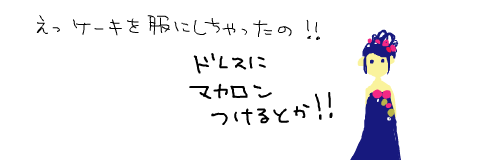 えっ ケーキを服にしちゃったの!!
ドレスに
マカロン
つけるとか!!